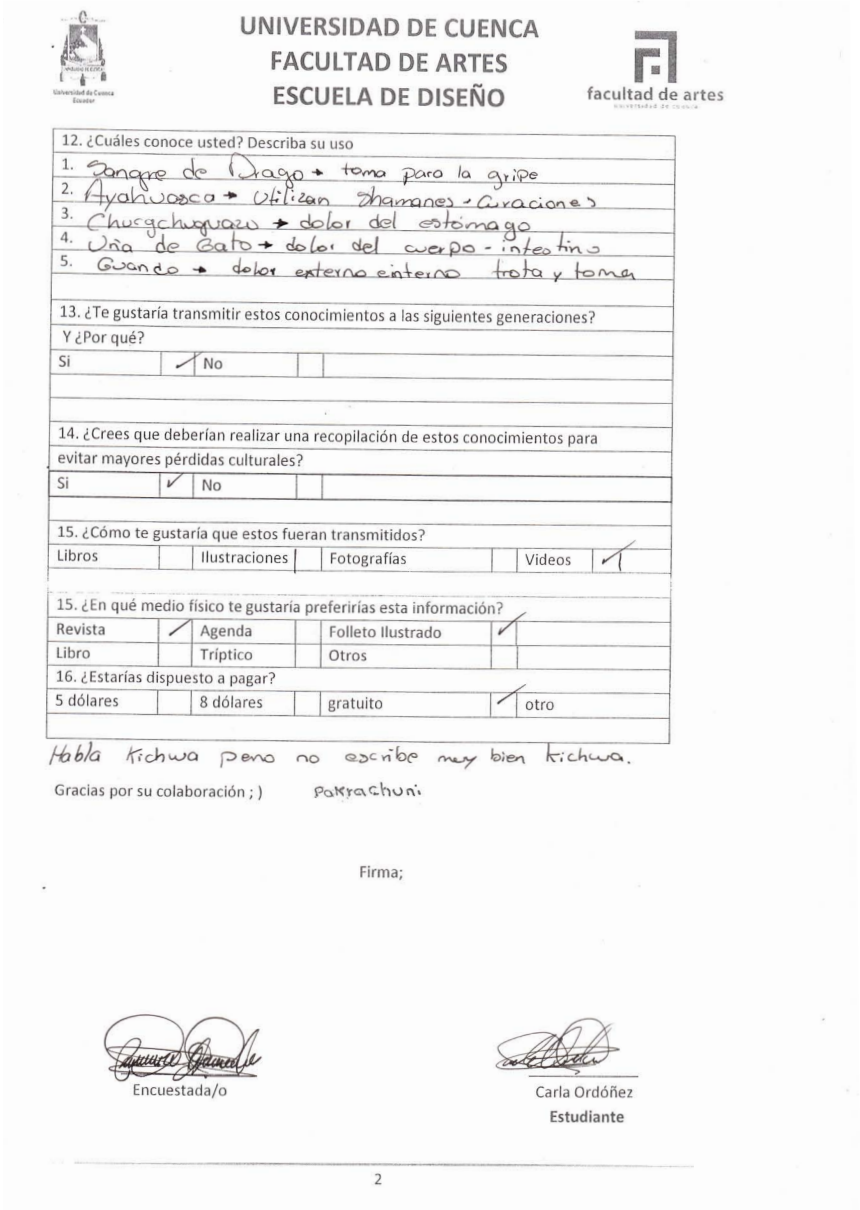 UNIVERSIDAD DE CUENCA
FACULTAD DE ARTES
ESCUELA DE DISEÑO
Universidad de Cuenca
Ecuador
facultad de artes
universidad de cuenca
12. ¿Cuáles conoce usted? Describa su uso
1. Sangre de Drago → toma para la gripe
2. Ayahuasca → Utilizan Shamanes - Curaciones
3. Churgchuguazo → dolor del estómago
4. Uña de Gato → dolor del cuerpo - intestino
5. Guando → dolor externo e interno trota y toma
13. ¿Te gustaría transmitir estos conocimientos a las siguientes generaciones?
Y ¿Por qué?
Si ✓ No
14. ¿Crees que deberían realizar una recopilación de estos conocimientos para
evitar mayores pérdidas culturales?
Si ✓ No
15. ¿Cómo te gustaría que estos fueran transmitidos?
Libros Ilustraciones Fotografías Videos ✓
15. ¿En qué medio físico te gustaría preferirías esta información?
Revista ✓ Agenda Folleto Ilustrado ✓
Libro Tríptico Otros
16. ¿Estarías dispuesto a pagar?
5 dólares 8 dólares gratuito ✓ otro
Habla Kichwa pero no escribe muy bien kichwa.
Gracias por su colaboración ; ) Pakrachuni
Firma;
Encuestada/o Carla Ordóñez
Estudiante
2